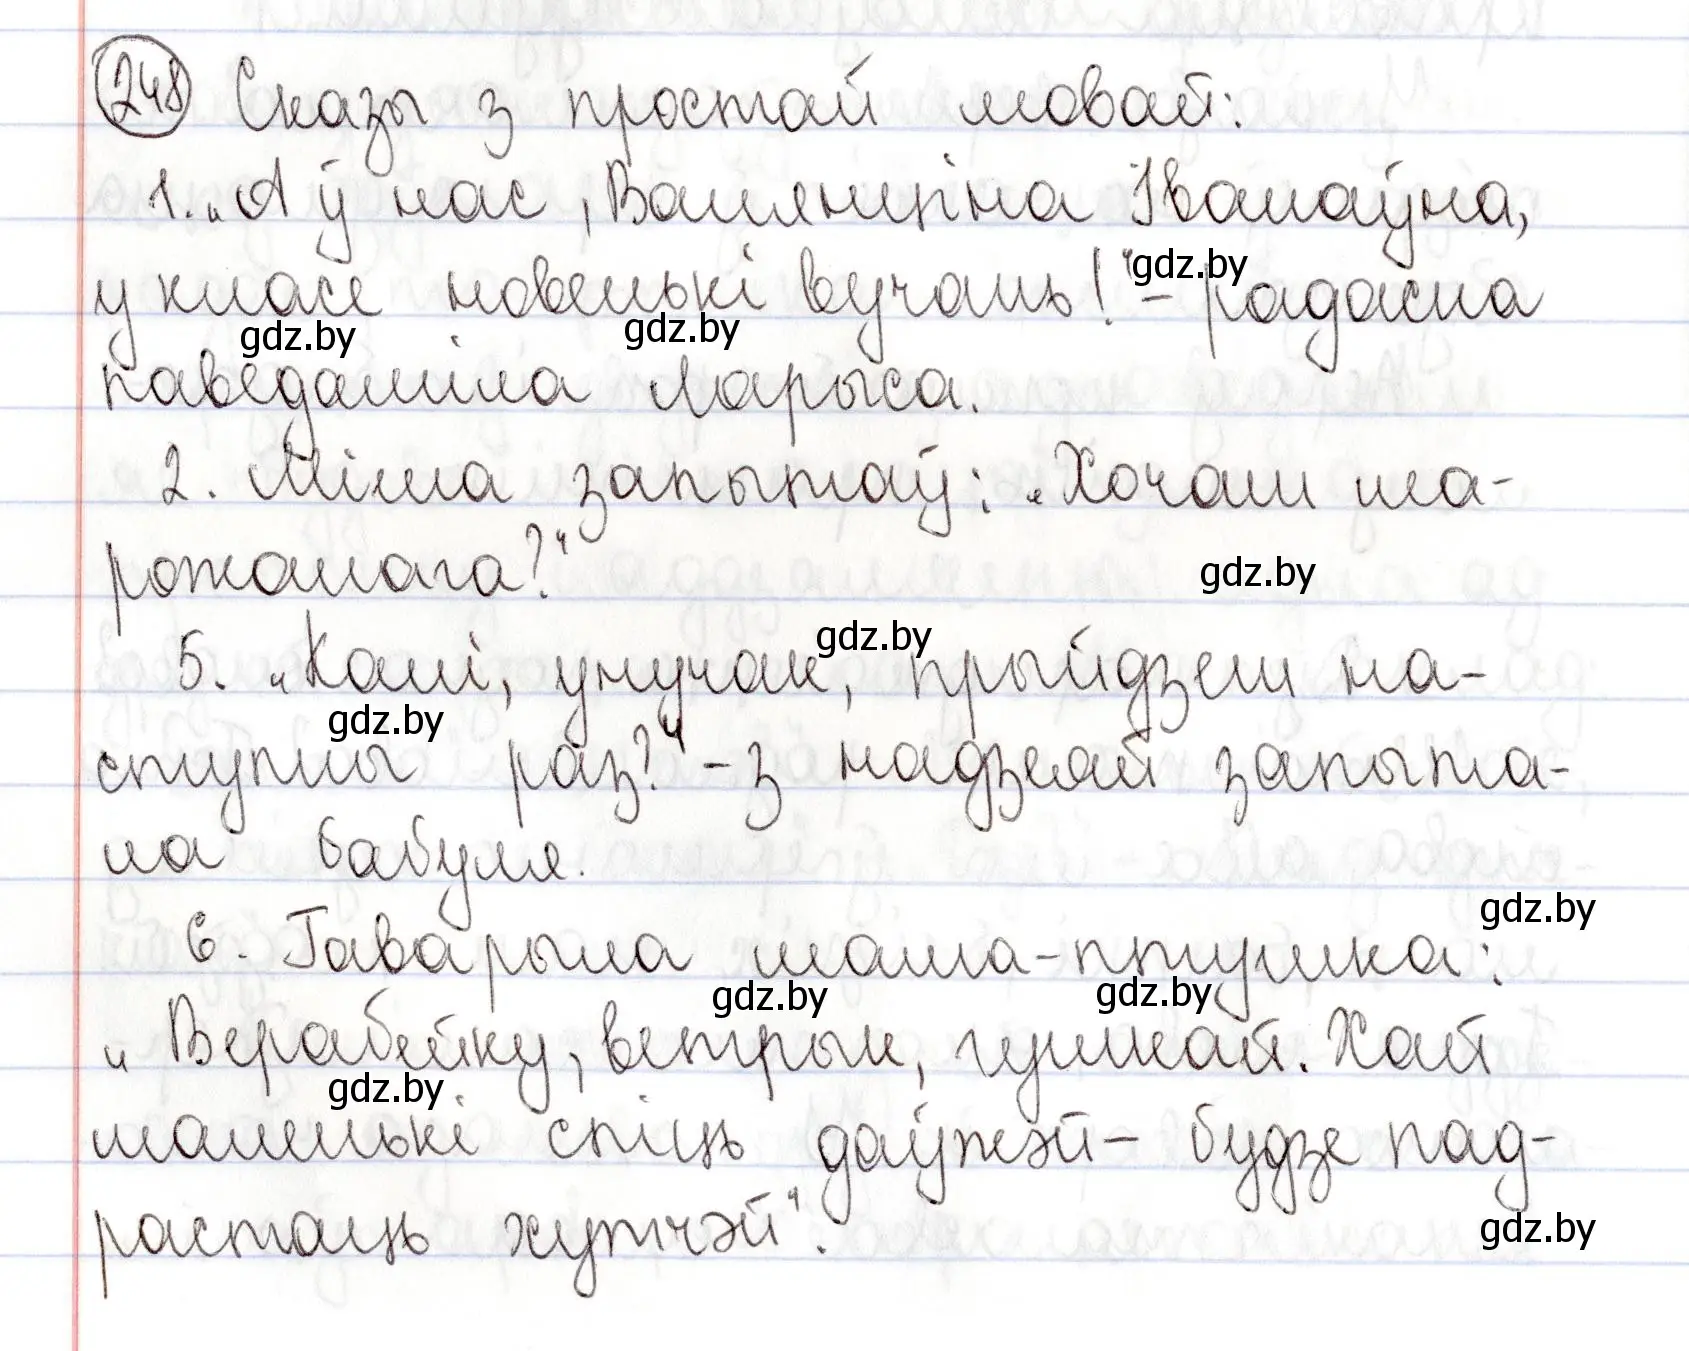 248 Сказы з простай мовай:
1. „А ў нас, Валянціна Іванаўна,
у класе новенькі вучань!“ – радасна
паведаміла Ларыса.
2. Міша запытаў: „Хочаш ма-
рожанага?“
5. „Калі, унучак, прыйдзеш на-
ступны раз?“ – з надзеяй запыта-
ла бабуля.
6. Гаварыла мама-птушка:
„Верабейку, ветрык, гушкай. Хай
маленькі спіць даўжэй – будзе пад-
растаць хутчэй“.
gdz.by
gdz.by
gdz.by
gdz.by
gdz.by
gdz.by
gdz.by
gdz.by
gdz.by
gdz.by
gdz.by